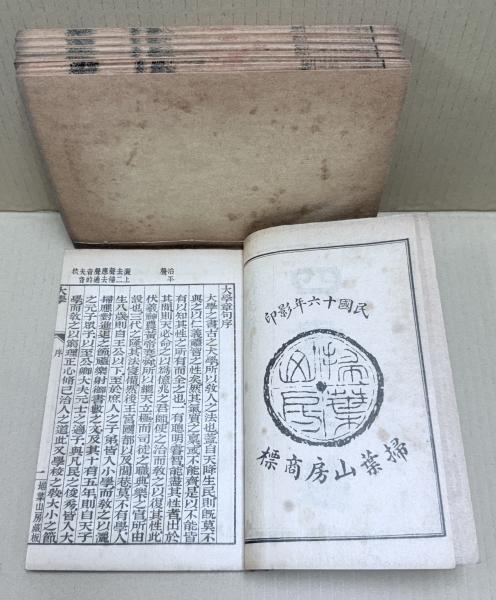 民國十六年影印
掃葉山房
掃葉山房商標
治平聲
灑去聲應聲音夫校
上二掃去過的音
大學章句序
大學之書古之大學所以教人之法也蓋自天降生民則既莫不
與之以仁義禮智之性矣然其氣質之稟或不能齊是以不能皆
有以知其性之所有而全之也一有聰明睿智能盡其性者出於
其閒則天必命之以爲億兆之君師使之治而教之以復其性此
伏羲神農黃帝堯舜所以繼天立極而司徒之職典樂之官所由
設也三代之隆其法寖備然後王宮國都以及閭巷莫不有學人
生八歲則自王公以下至於庶人之子弟皆入小學而教之以灑
掃應對進退之節禮樂射御書數之文及其十有五年則自天子
之元子眾子以至公卿大夫元士之適子與凡民之俊秀皆入大
學而教之以窮理正心修己治人之道此又學校之教大小之節
大學
序
一
掃葉山房藏板